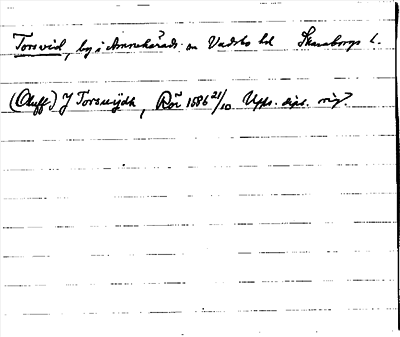 Torsvid, by i Amnehärads sn Vadsbo hd Skaraborgs l.
(Oluff) J Torswijdh, Rör 1586 21/10 Upps. dipl. orig.